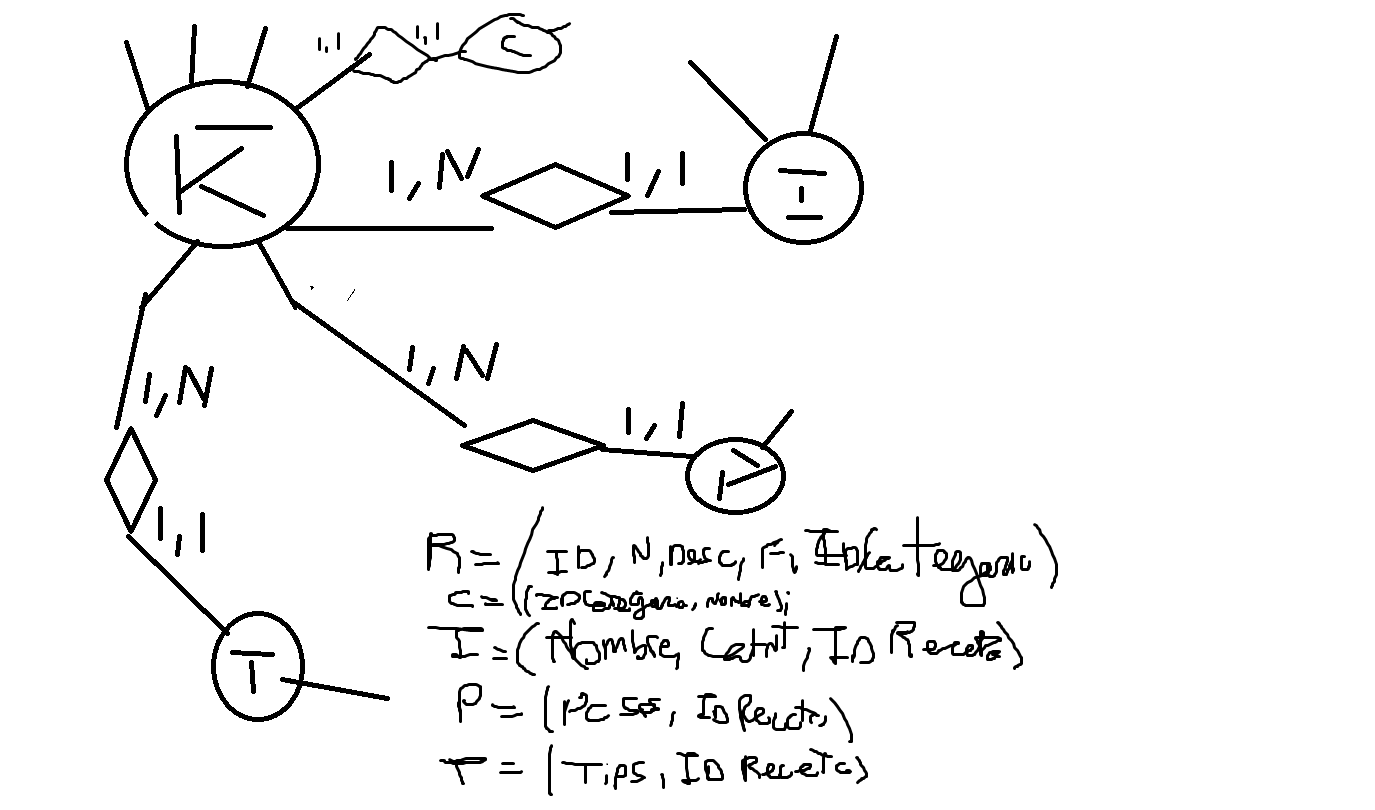 1,1 1,1 C
R
1,N 1,1 I
1,N
1,N
1,1 P
1,1
T
R = (ID, N, Desc, F, IDCategoria)
C = (IDCategoria, Nombre);
I = (Nombre, Catnt, ID Receta)
P = (ID Receta)
T = (Tips, ID Receta)